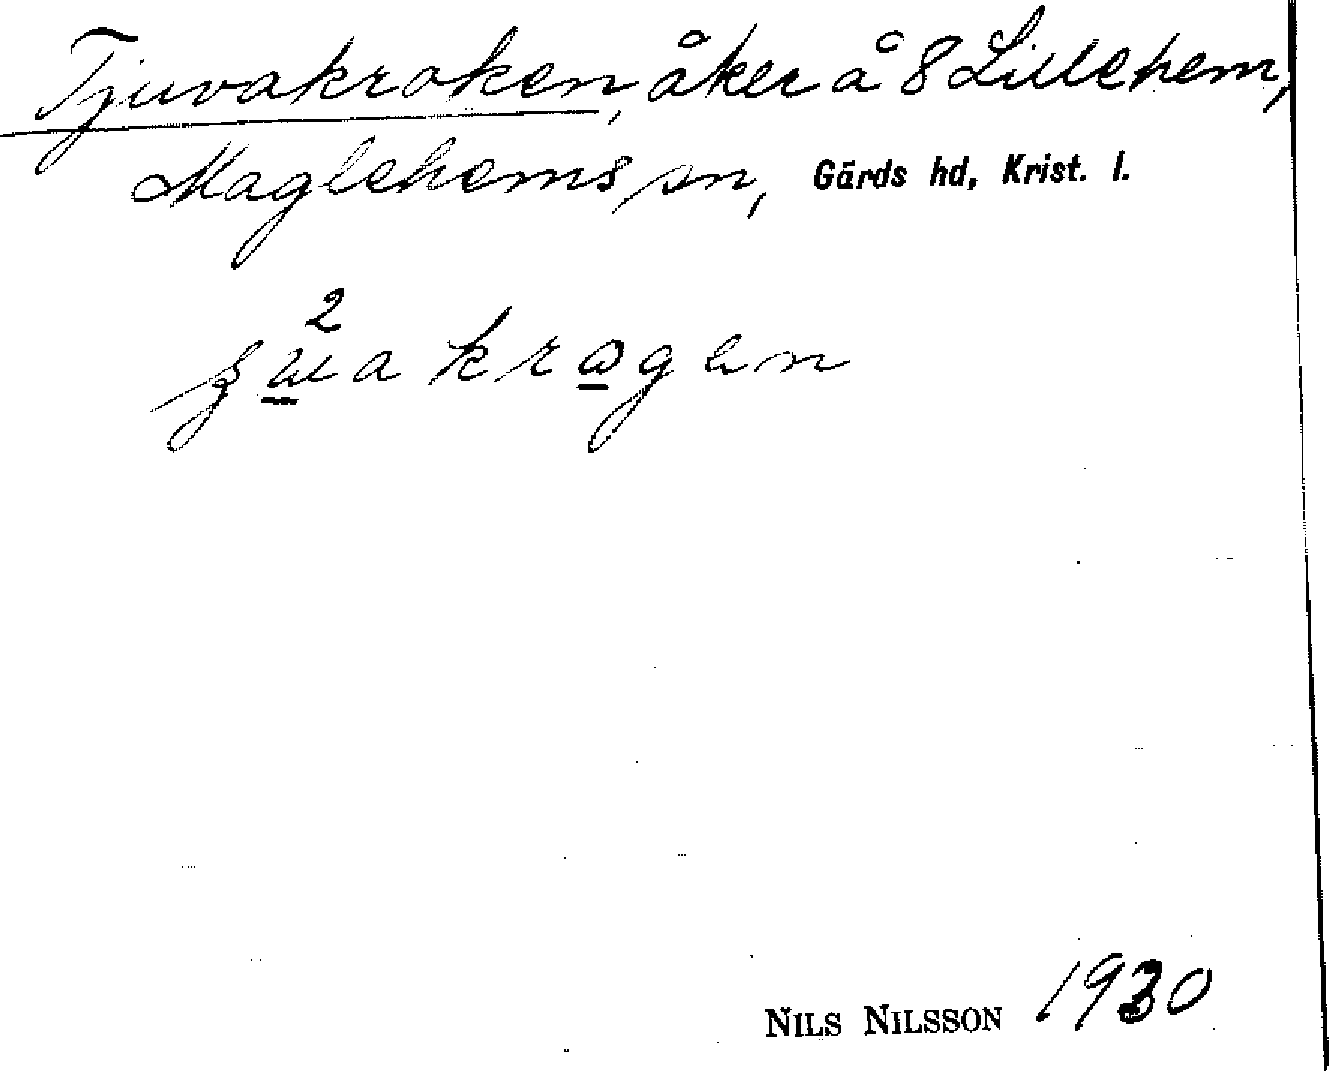 Tjuvakroken, åker å 8 Lillehem,
Maglehems sn, Gärds hd, Krist. l.
NILS NILSSON 1930